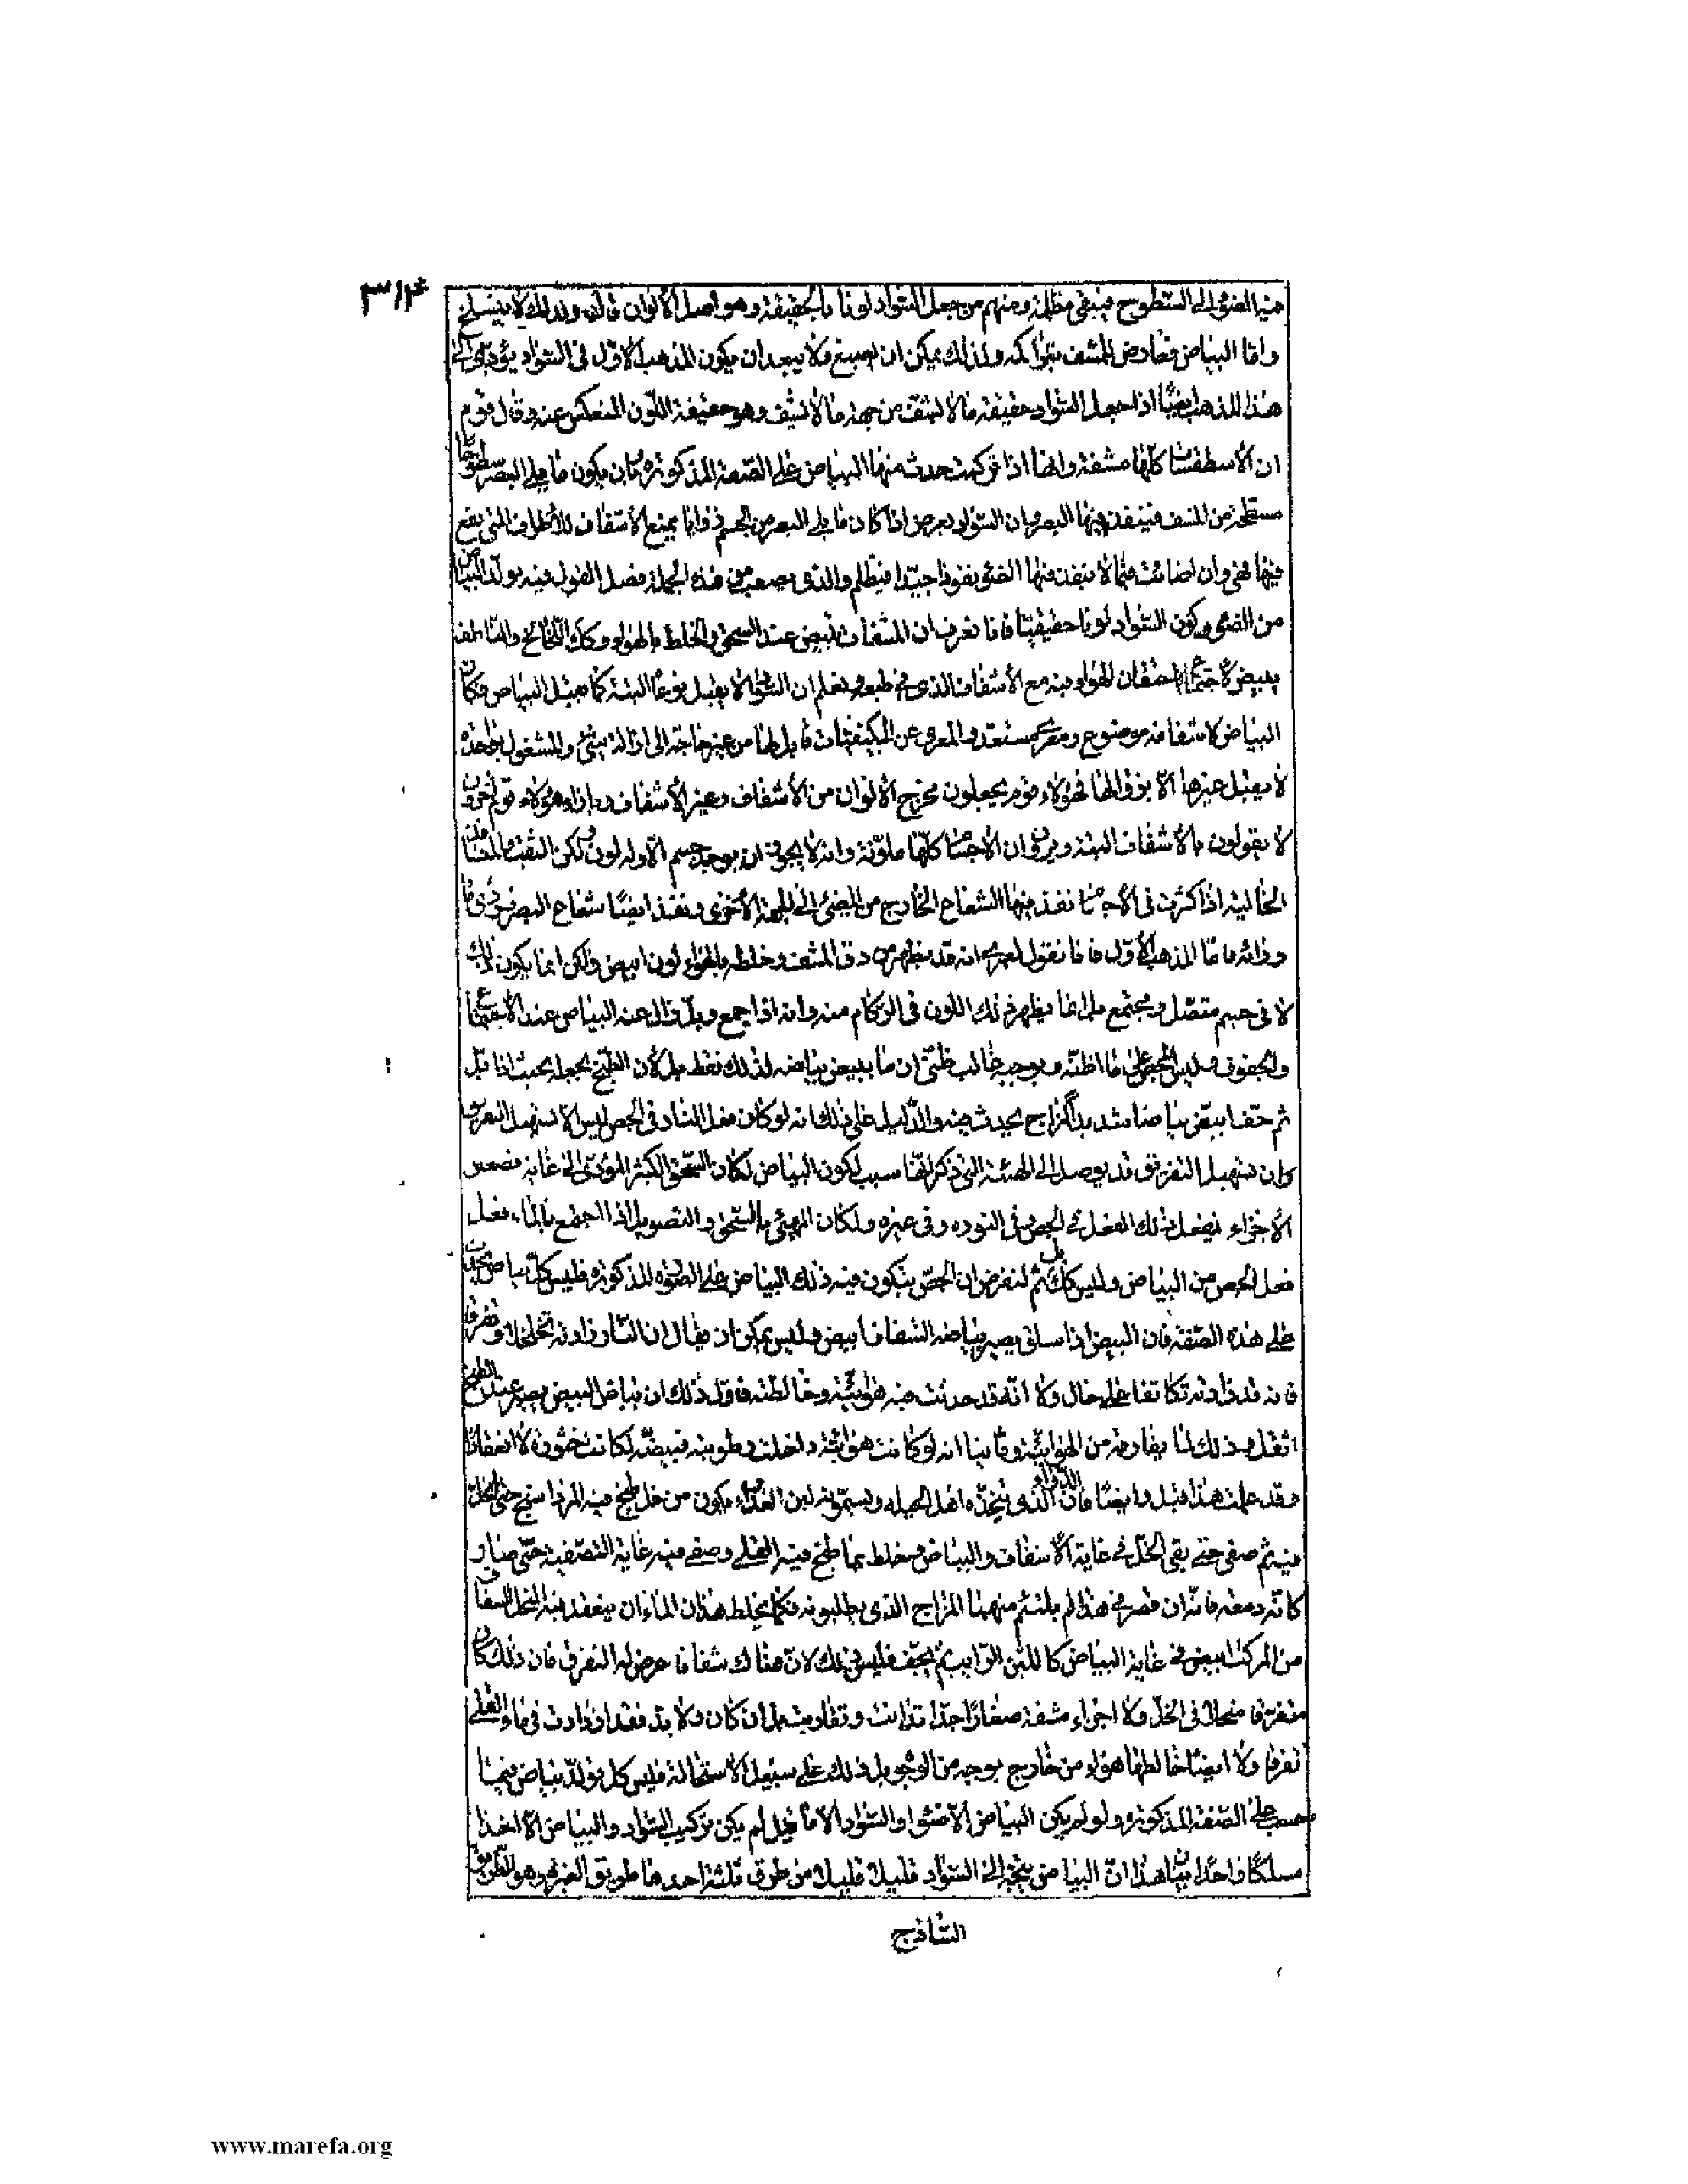 ٣١٤
فيها الضوء الى السطوح فيبقى مظلمة ومنهم من جعل السواد لونا بالحقيقة وهو اصل الألوان قال ولذلك لا ينسلخ
واما البياض فعارض للمشف بتراكمه ولذلك يمكن ان يصبغ ولا يبعد ان يكون المذهب الاول فى السواد يؤدى الى
هذا المذهب ايضا اذا جعل السواد حقيقة ما لا يشف من جهة ما لا يشف وهو حقيقة اللون المنعكس عنه وقال قوم
ان الأسطقسات كلها مشفة وانها اذا تركبت حدث منها البياض على الصفة المذكورة بان يكون ما يلى البصر سطوحا
مسطحة من المشف فينفذ فيها البصر وان السواد يعرض اذا كان ما يلى البصر من الجسم زوايا يمنع الأشفاف للأطراف التى يقع
فيها فهى وان اضاءت فما لا ينفذ فيها الضوء نفوذا جيدا فيظلم والذى يصعب من هذه الجملة فصل القول فيه تولد البياض
من الضوء وكون السواد لونا حقيقيا فانا نعرف ان المشفات تبيض عند السحق والخلط بالهواء وكذلك اللخالخ والناطف
يبيض لاجتماع احتقان الهواء فيه مع الأشفاف الذى فى طبعه ونعلم ان السواد لا يقبل لونا البتة كما يقبل البياض فكان
البياض لاشفافه موضوع ومعرى مستعد والمعرى عن الكيفيات قابل لها من غير حاجة الى ازالة شىء والمشغول بواحدة
لا يقبل غيرها الا بزوالها فهؤلاء قوم يجعلون مخرج الألوان من الأشفاف وغير الأشفاف وبازاء هؤلاء قوم اخرون
لا يقولون بالأشفاف البتة ويرون ان الأجسام كلها ملونة وانه لا يجوز ان يوجد جسم الا وله لون ولكن الثقب والمنافذ
الخالية اذا كثرت فى الأجسام نفذ فيها الشعاع الخارج من المضىء الى الجهة الأخرى ونفذ ايضا شعاع البصر فرؤى ما
ورائه فاما المذهب الأول فانا نقول لعمرى انه قد يظهر من دق المشف وخلطه بالهواء لون ابيض ولكن انما يكون ذلك
لا فى جسم متصل ومجتمع بل انما يظهر ذلك اللون فى الركام منه وانه اذا جمع وبل زال عنه البياض عند الاجتماع
والجفوف وليس الجص على ما اظنه ويوجبه غالب ظنى ان ما يبيض بياضه لذلك فقط بل لأن الطبخ يجعله بحيث اذا بل
ثم جف ابيض بياضا شديدا لمزاج يحدث فيه والدليل على ذلك انه لو كان فعل النار فى الجص ليس الا تسهيل التفريق
وان تسهيل التفريق قد يوصل الى الهيئة التى ذكرناها سبب لكون البياض لكان السحق الكثير المؤدى الى غاية تصغير
الأجزاء يفعل ذلك الفعل فى الجص وفى النورة وفى غيره ولكان المهيئ بالسحق والتصويل اذا اجتمع بالماء فعل
فعل الجص من البياض وليس كذلك ثم لنفرض ان الجص يتكون فيه ذلك البياض على الصفة المذكورة فليس كل بياض يتكون
على هذه الصفة فان البيض اذا سلق يصير بياضه الشفاف ابيض وليس يمكن ان يقال ان النار زادته تخلخلا وتفرقا
فانه قد زادته تكاثفا على حال ولا انه قد حدثت فيه هوائية وخالطته فاول ذلك ان بياض البيض يصير عند الطبخ
اثقل وذلك لما يفارقه من الهوائية وثانيا انه لو كانت هوائية داخلت رطوبته فبيضته لكانت خثورة لا انعقادا
وقد علمت هذا قبل وايضا فان الدواء الذى يتخذه اهل الحيلة ويسمونه لبن العذراء يكون من خل طبخ فيه المرداسنج حتى انحل
فيه ثم صفى حتى بقى الخل فى غاية الأشفاف والبياض وخلط بما طبخ فيه القلى وصفى فيه غاية التصفية حتى صار
كانه دمعة فانه ان قصر فى هذا لم يلتئم منهما المزاج الذى يطلبونه فكما يخلط هذان الماءان ينعقد فيه المنحل الشفاف
من المرتك ابيض فى غاية البياض كاللبن الرائب ثم يجف فليس ذلك لان هناك شفافا عرض له التفرق فان ذلك كان
متفرقا منحلا فى الخل ولا اجزاء مشفة صغارا جدا تدانت وتقاربت بل ان كان ولا بد فقد ازدادت فى ماء القلى
تفرقا ولا ايضا خالطها هواء من خارج بوجه من الوجوه بل ذلك على سبيل الاستحالة فليس كل تولد بياض فيما
حسب على الصفة المذكورة ولو لم يكن البياض الا ضوءا والسواد الا ما قيل لم يكن تركيب السواد والبياض الا اخذا
مسلكا واحدا بيان هذا ان البياض يتجه الى السواد قليلا قليلا من طرق ثلثة احدها طريق الغبرة وهو الطريق
الساذج
www.marefa.org